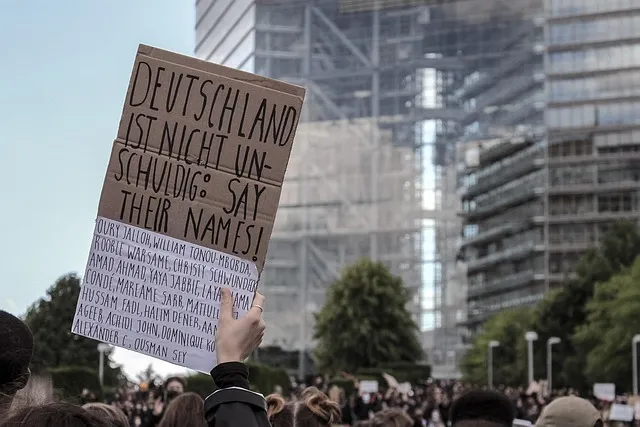 DEUTSCHLAND
IST NICHT UN-
SCHULDIG: SAY
THEIR NAMES!
OURY JALLOH, WILLIAM TONOU-MBOBDA,
ROOBLE WARSAME, CHRISTY SCHWUNDECK
AMAD AHMAD, YAYA JABBIE, LAYA
CONDÉ, MAREAME SARR, MATIU
HUSSAM FADL, HALIM DENER,
AGEEB, ACHIDI JOHN, DOMINIQUE
ALEXANDER C, OUSMAN SEY